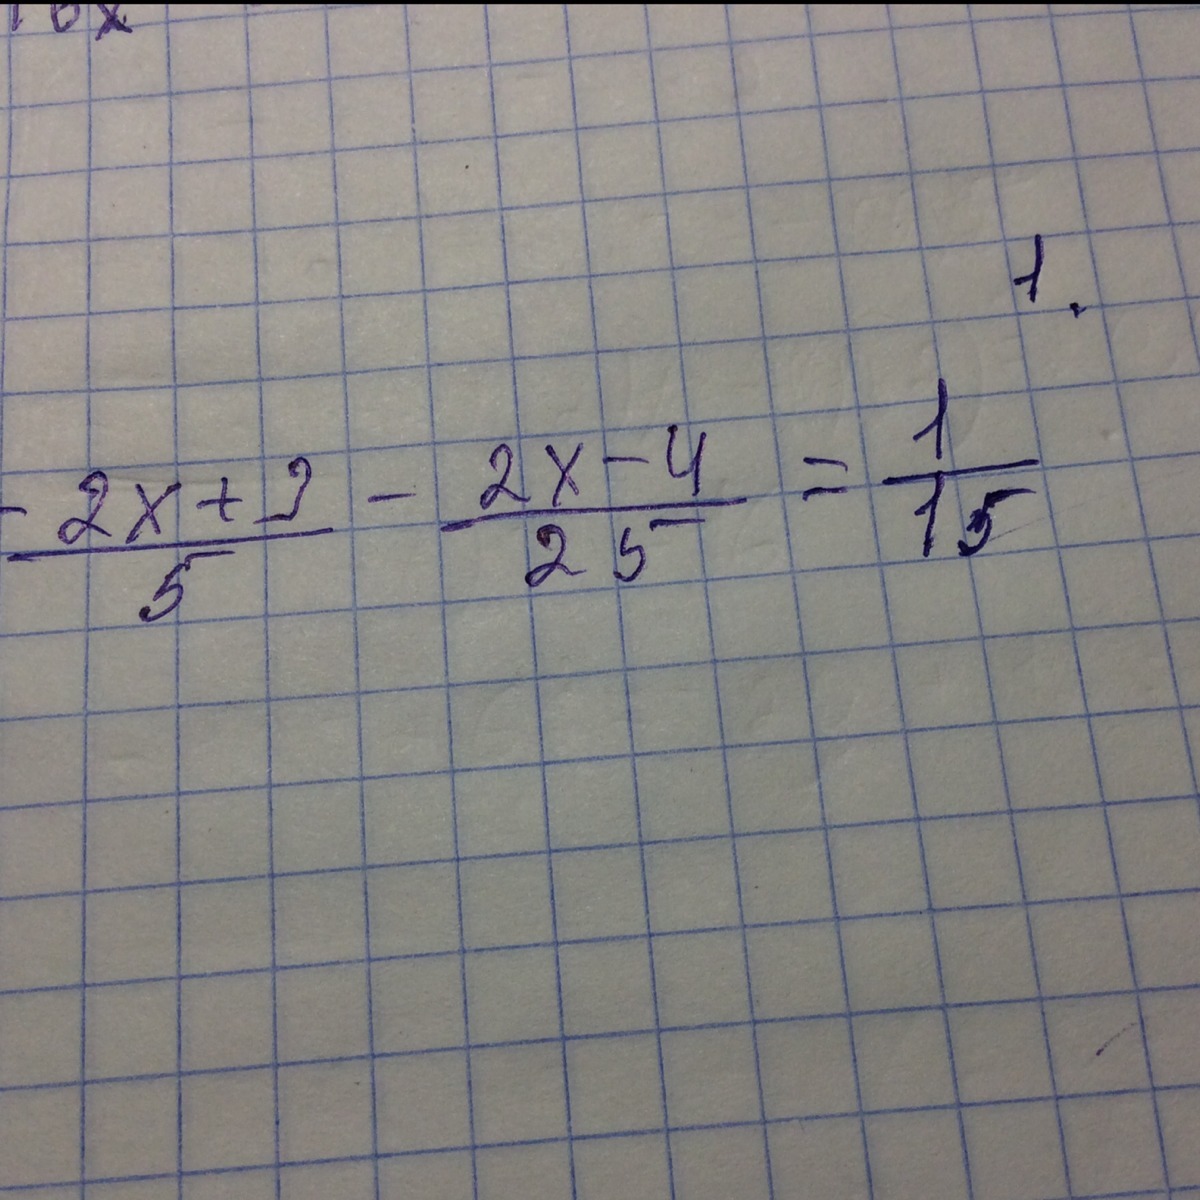 1.
(-2x+3)/5 - (2x-4)/25 = 1/15